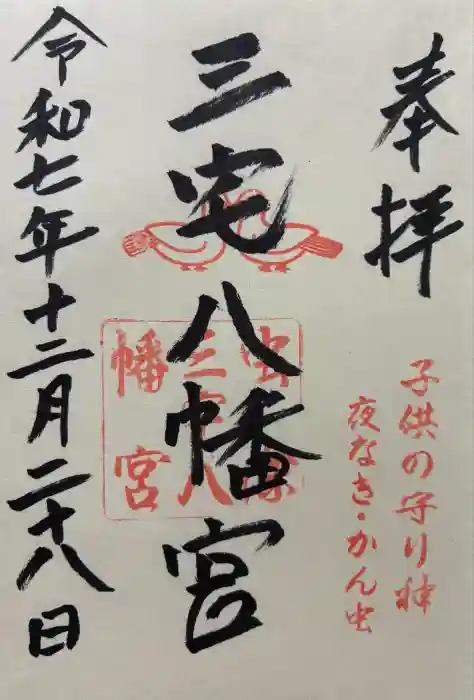 奉拝
子供の守り神
夜なき・かん虫
三宅八幡宮
虫
三宅八
幡宮
令和七年十二月二十八日